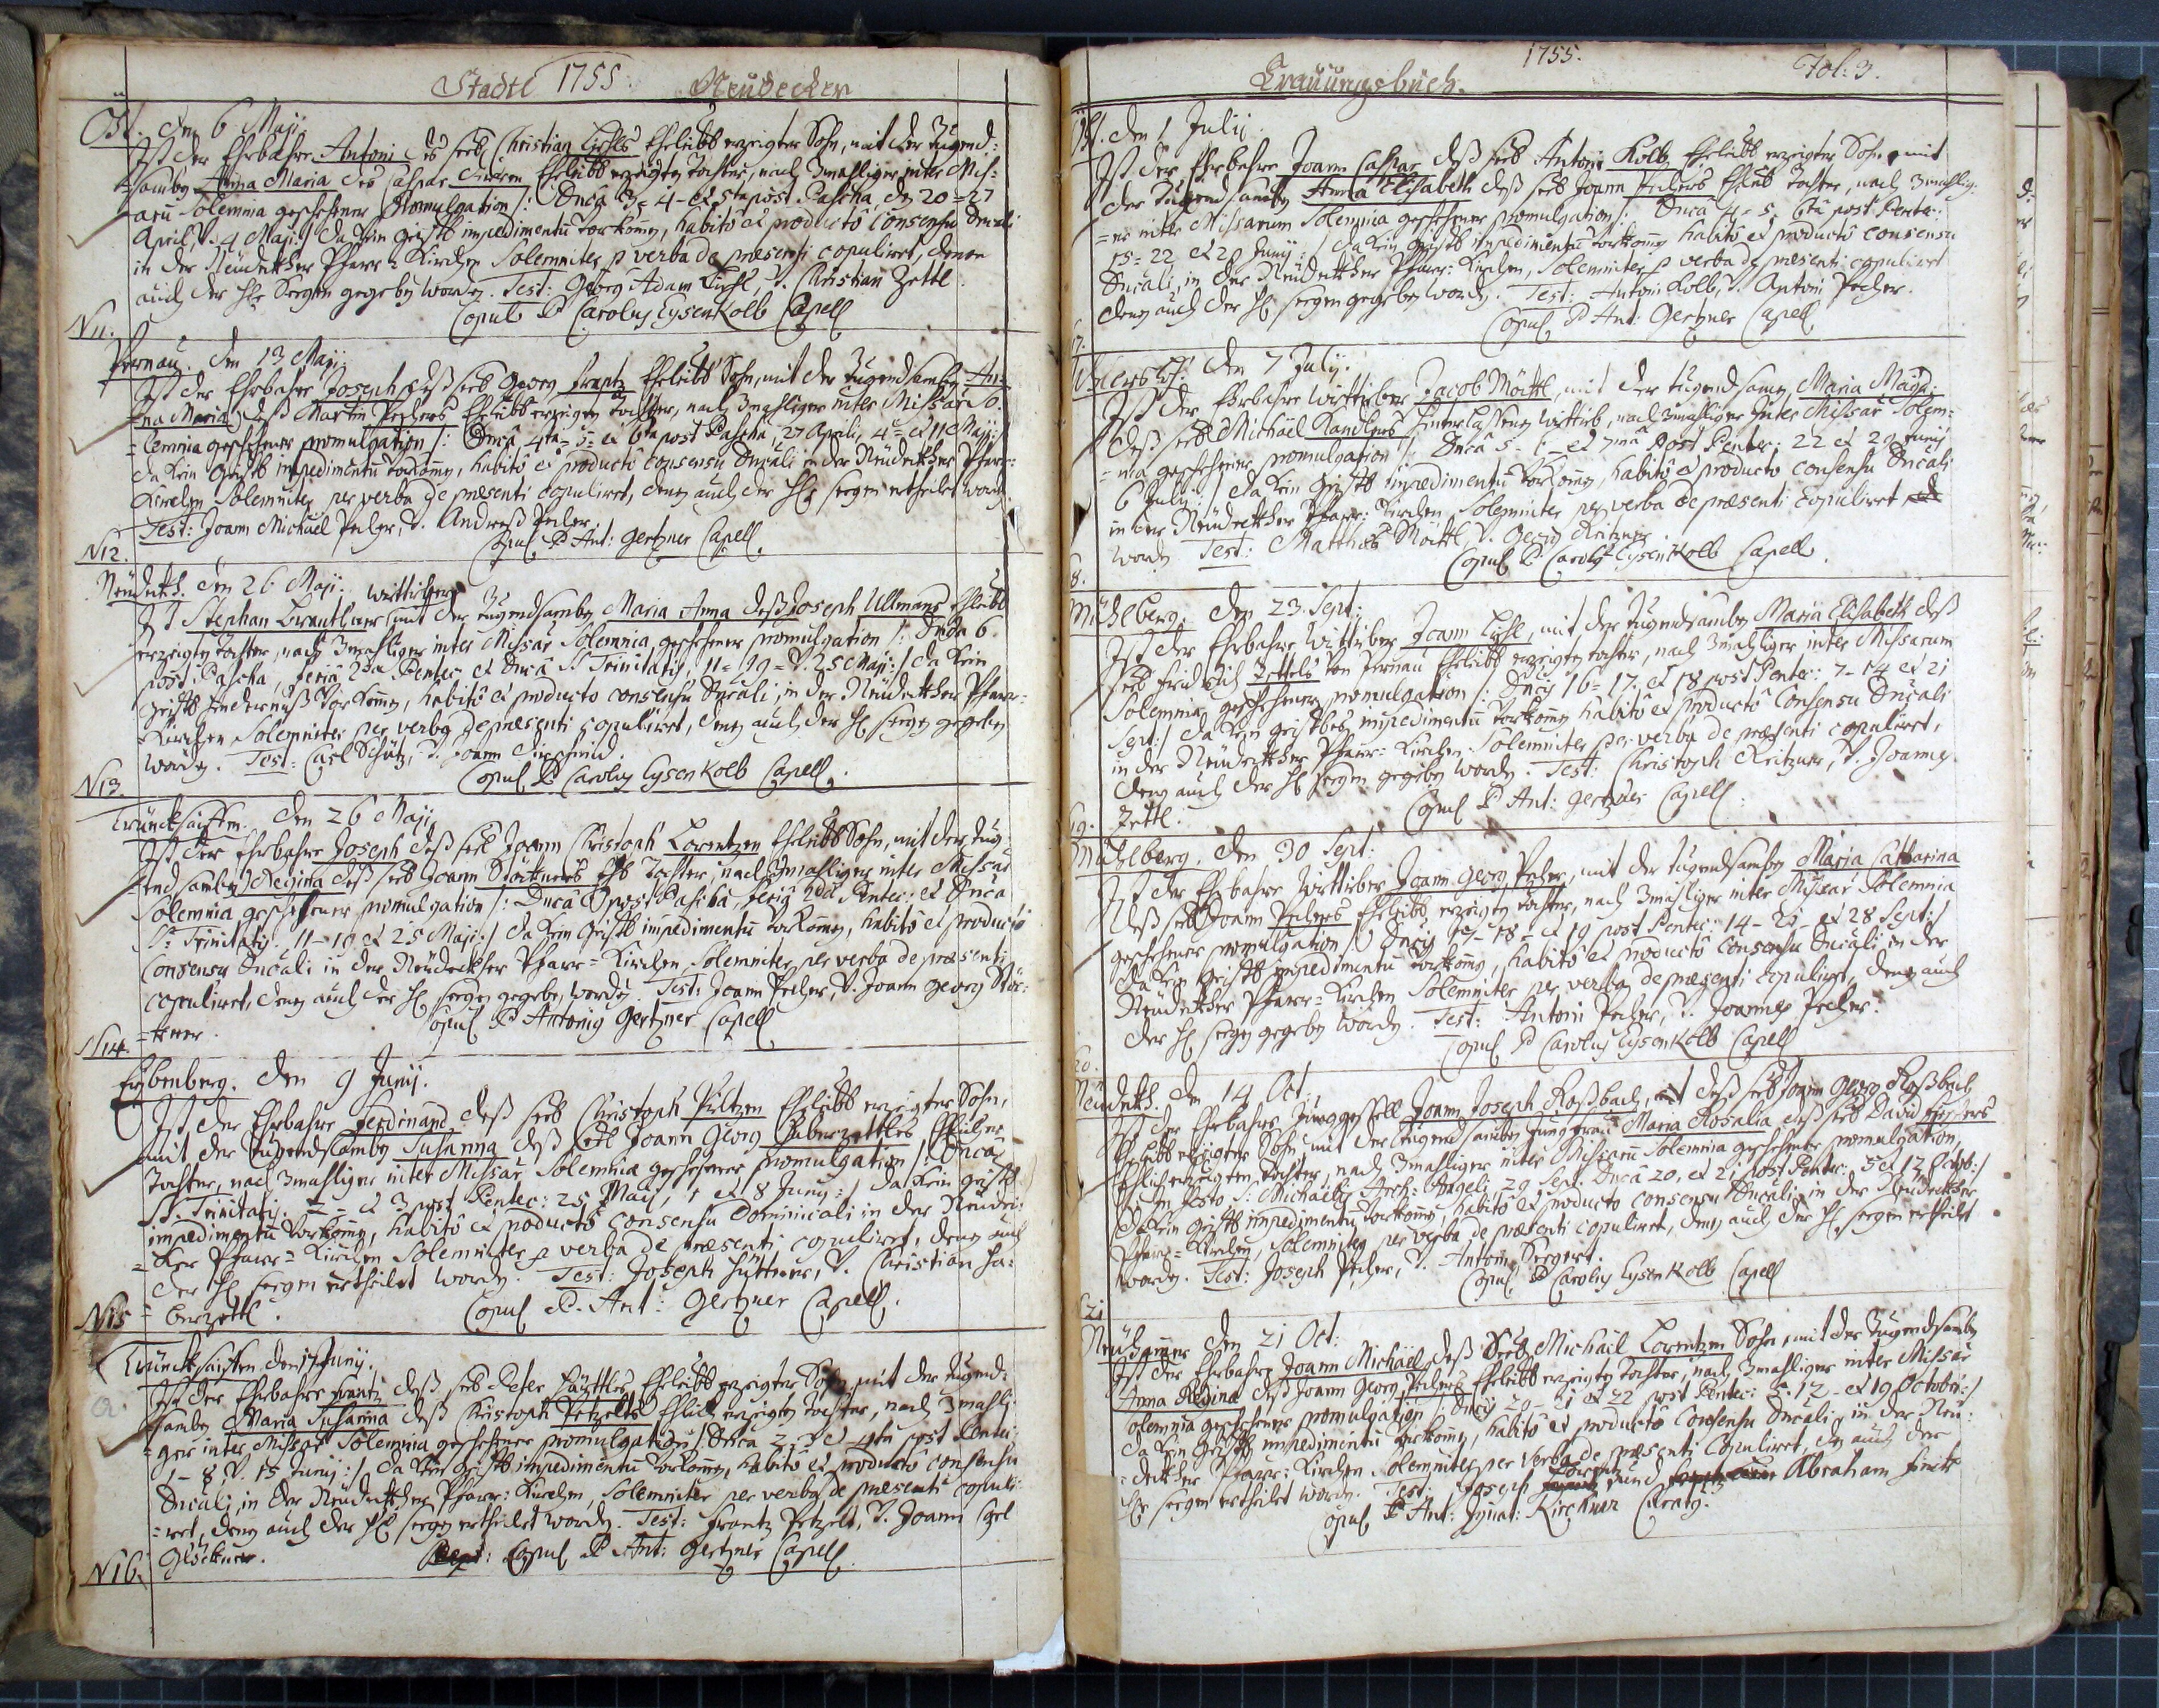 Stadtl 1755. Neudecker
den 6 Maij
Ist der Ehrbahre Antoni des seel Christian Ehrleibl erzeigter Sohn, mit der Tugend:
samben Anna Maria des Caspar Ehrleibl erzeigten Tochter, nach 3mahliger inter Mis:
arū Solemnia geschehener Promulgation /: Dncâ 3 = 4 - et 5ta post Pascha, den 20 = 27
April, V. 4 Maij :/ da kein geistl impedimentū vorkomen, habitô et productô Consensu Dncali
in der Neudekher Pfarr = Kirchen Solemniter p verba de præsenti copuliret, denen
auch der hl Seegen gegeben worden. Test: Georg Adam V. Christian Zettl
Copul P Carolus Eysenkolb Capell
N 11.
Pernau. den 13 Maij
Ist der Ehrbahre Joseph deß seel Georg Frantz Ehrleibl Sohn, mit der Tugendsamben An=
na Maria deß Martin Pechers Ehrleibl erzeigten Tochter, nach 3mahliger inter Missarū So:
= lemnia geschehener promulgation /: Dncâ 4ta = 5 = et 6ta post Pascha, 27 Aprili, 4 = et 11 Maij:/
da kein geistl impedimentū vorkomen, habitô et productô Consensu Dncali in der Neudekher Pfarr=
Kirchen Solemniter per verba de præsenti copuliret, denen auch der hl seegen ertheilet word
Test: Joann Michael Pecher, V. Andreaß Pecher.
Copul P Ant: Gertzner Capell
N 12.
Neudekh. den 26 Maij. wittiber
Ist Stephan Brantlner mit der tugendsamben Maria Anna deß Joseph Ullmans Ehleibl
erzeigten tochter, nach 3mahliger inter Missar Solemnia geschehener promulgation /: Dncâ 6.
post Pascha, feria 2da Pentec et Dncâ S Trinitatis 11 = 19 = V. 25 Maij :/ da kein
geistl hindernuß vorkomen, habitô et producto consensu Dncali, in der Neudekher Pfarr=
= Kirchen Solemniter per verba de præsenti copuliret, denen auch der hl seegen gegeben
worden. Test: Carl Schütz, V. Joann
Copul P Carolus Eysenkolb Capell.
N 13
Trinckseiffen. den 26 Maij
Ist der Ehrbahre Joseph deß seel Joann Christoph Lorentzen Ehrleibl Sohn, mit der tug=
endsamben Regina deß seel Joann Stöckners Tochter, nach 3mahliger inter Missar
Solemnia geschehener promulgation /: Dncâ 6 post Pascha, feria 2da Pentec: et Dnca
Ss Trinitatis. 11 - 19 et 25 Maij :/ da kein geistl impedimentū vorkomen, habitô et productô
Consensu Dncali in der Neudekher Pfarr = Kirchen Solemniter per verba de præsenti
copuliret, denen auch der hl seegen gegeben worden. Test: Joann Pecher, V. Joann Georg Stöc:
= kner. Copul P Antonig Gertzner Capell
N 14.
Eybenberg. den 9 Junij.
Ist der Ehrbahre Ferdinand deß seel Christoph Piltzen Ehrleibl erzeigter Sohn,
mit der tugendsamben Susanna deß seel Joann Georg Haberzettls Ehleibe
Tochter, nach 3mahliger inter Missar Solemnia geschehener promulgation /: Dncâ
SS. Trinitatis. 2 = et 3 post Pentec: 25 Maij, 1 et 8 Junij :/ da kein geistl
impedimentū vorkomen, habitô et productô Consensu Dominicali in der Neude:
= ker Pfarr = Kirchen Solemniter p verba de præsenti copuliret, denen auch
der hl seegen ertheilet worden. Test: Joseph Hüttner, V. Christian Ha:
= berzettl. Copul P. Ant: Gertzner Capell.
N 15
Trinckseiffen den 17 Junij.
Ist der Ehrbahre Frantz deß seel Peter Ehrleibl erzeigter Sohn mit der tugend:
samben Maria Susanna deß Christoph Petzelts Ehlich erzeigten tochter, nach 3mahli:
= ger inter Missar Solemnia geschehener promulgation /: Dnca 2. 3 et 4ta post Pentec:
1 - 8 V. 15 Junij :/ da kein geistl impedimentū vorkomen, habitô et producto consensu
Dncali, in der Neudekher Pfarr: Kirchen, Solemniter per verba de præsenti copuli:
= ret, denen auch der hl seegen ertheilet worden. Test: Frantz Petzelt, V. Joann
Glöckner. Copul P Ant: Gertzner Capell
N 16.
Trauungsbuch. 1755. Fol: 3.
den 1 Julij
Ist der Ehrbahre Joann Caspar deß seel Antoni Kolb Ehrleibl erzeigter Sohn, mit
der tugendsamben Anna Elisabeth deß seel Joann Pechers Ehleibl Tochter, nach 3mahlig:
= er inter Missarum Solemnia geschehener promulgation /: Dnca 4 = 5. 6ta post Pentec:
15 = 22 et 29 Junij :/ da kein geistl impedimentū vorkomen habitô et productô consensu
Dncali, in der Neudekher Pfarr: Kirchen, Solemniter p verba de præsenti copuliret
denen auch der hl seegen gegeben worden. Test: Antoni Kolb, V. Antoni Pecher.
Copul P Ant: Gertzner Capell
17.
den 7 Julij.
Ist der Ehrbahre wittiber Jacob Möckl, mit der tugendsamen Maria Magd:
deß seel Michael Kandlers hinterlassenen wittib, nach 3mahliger Inter Missar Solem:
= nia geschehener promulgation /: Dncâ 5 - 6 - et 7mâ post Pentec: 22 et 29 Junij
6 Julij :/ da kein geistl impedimentū vorkomen, habitô et producto consensu Dncali
in der Neudekher Pfarr: Kirchen Solemniter per verba de præsenti copuliret
worden Test: Matthæs Möckl, V. Georg Reitzner
Copul P. Carolg Eysenkolb Capell.
8.
Mühlberg. den 23. Sept:
Ist der Ehrbahre wittiber Joann mit der tugendsamben Maria Elisabeth deß
seel Fridrich Zettels von Pernau Ehrleibl erzeigten tochter, nach 3mahliger inter Missarum
Solemnia geschehener promulgation /: Dncis 16 = 17. et 18 post Pentec: 7 - 14 et 21
Sept :/ da kein geistliches impedimentū vorkomen habitô et productô Consensu Dncali
in der Neudekher Pfarr: Kirchen. Solemniter per verba de præsenti copuliret,
denen auch der hl seegen gegeben worden. Test: Christoph Reitzner, V. Joannes
Zettl. Copul P Ant: Gertzner Capell.
19.
Mühlberg. den 30 Sept:
Ist der Ehrbahre wittiber Joann Georg Pecher, mit der tugendsamben Maria Catharina
deß seel Joann Pechers Ehrleibl erzeigten tochter, nach 3mahliger inter Missar Solemnia
geschehener promulgation /: Dncis 17 - 18 - et 19 post Pentec: 14 - 21 - et 28 Sept :/
da kein geistl impedimentū vorkomen, habitô et productô Consensu Dncali in der
Neudekher Pfarr = Kirchen Solemniter per verba de præsenti copuliret, denen auch
der hl seegen gegeben worden. Test: Antoni Pecher, V. Joannes Pecher.
Copul P Carolus Eysenkolb Capell
20.
Neudekh. den 14 Oct.
Ist der Ehrbahre Junggesell Joann Joseph Roßbach, deß seel Joann Georg Roßbach
Ehleibl erzeigter Sohn, mit der tugendsamben Jungfrau Maria Rosalia deß seel David
Ehelich erzeugten tochter, nach 3mahliger inter Missarū Solemnia geschehener promulgation,
/: In Festo S: Michaelis Arch: Angeli, 29 Sept. Dncâ 20, et 21 post Pentec: 5 et 12 Octob:/
da kein geistl impedimentū vorkomen, habitô et producto consensu Dncali, in der Neudekher
Pfarr = Kirchen, Solemniter per verba de præsenti copuliret, denen auch der hl seegen ertheilet
worden. Test: Joseph Pecher, V. Antoni
Copul P Carolus Eysenkolb Capell
21
Neuhammer den 21 Oct:
Ist der Ehrbahre Joann Michael, deß Seel Michael Lorentzen Sohn, mit der tugendsamben
Anna Regina deß Joann Georg Pechers Ehrleibl erzeigten tochter, nach 3mahliger inter Missar
olemnia geschehener promulgation /: Dncis 20 - 21 et 22 post Pentec: 5. 12 - et 19 Octobri:/
da kein geistl impedimentū vorkomen, habitô et productô Consensu Dncali in der Neu:
= dekher Pfarr: Kirchen Solemniter per verba de præsenti Copuliret, den auch der
hl seegen ertheilet worden. Test: Joseph Lorentz und Abraham
Copul P Ant: Ignat: Kirchner